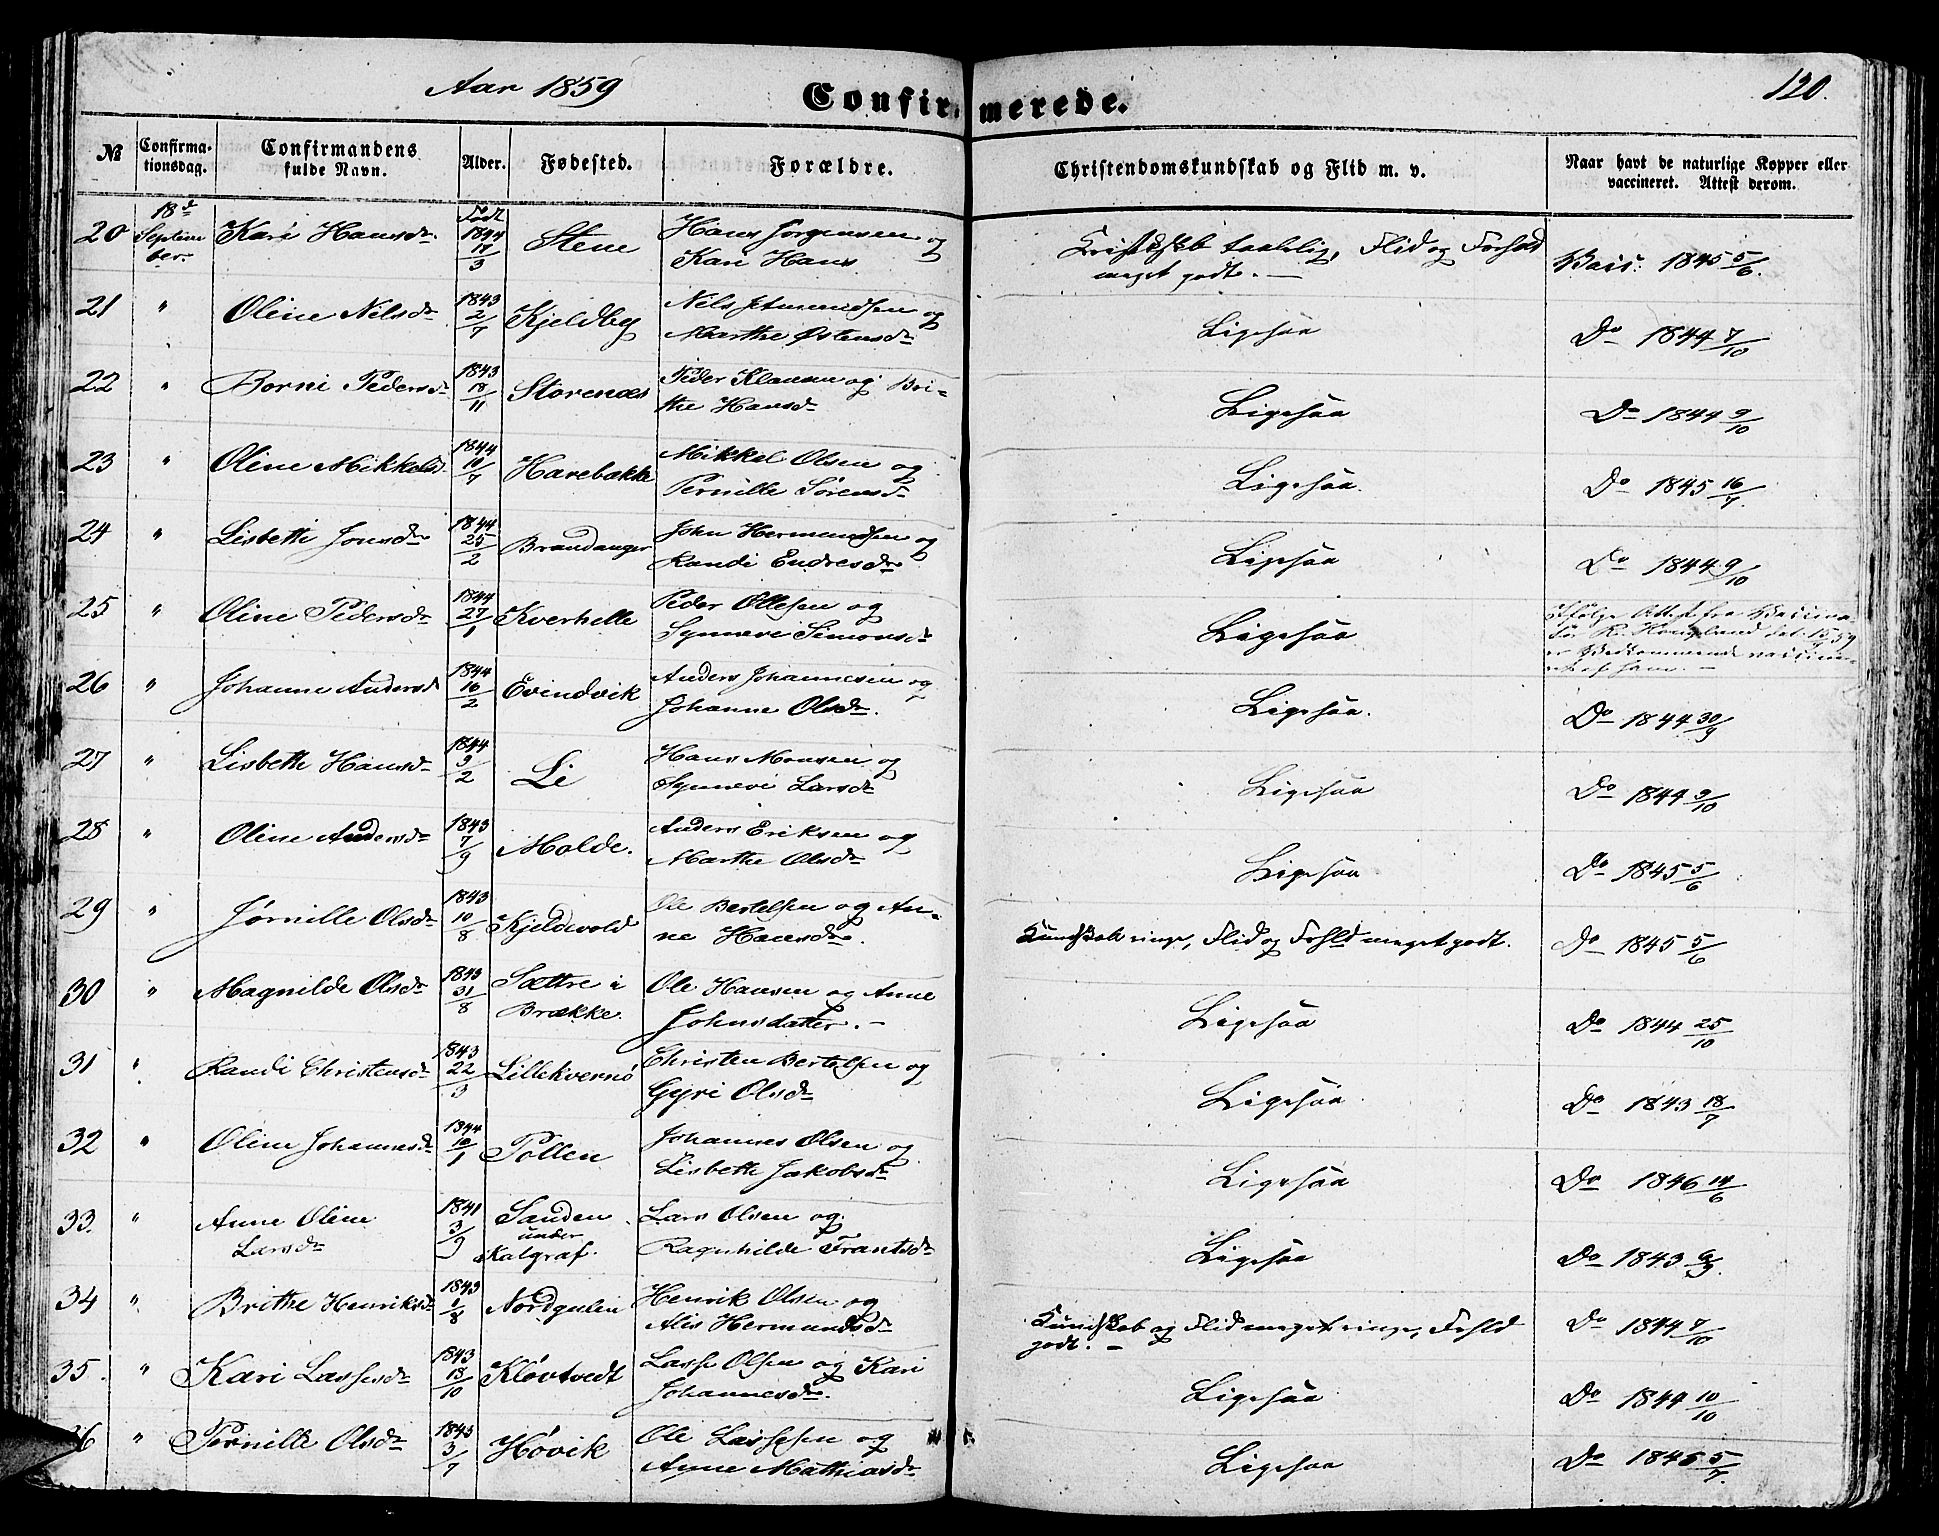 Aar 1859
Confirmerede.
120.
№ Confirmationsdag. Confirmandens fulde Navn. Alder. Fødested. Forældre. Christendomskundskab og Flid m. v. Naar havt de naturlige Kopper eller vaccineret. Attest derom.
20 18d September Kari Hansdr Født 1844 17/3 Stene Hans Jørgensen og Kari Hans taalelig, Flid og Forhold meget godt. — Vacc: 1845 5/6.
21 " Oline Nilsdr 1843 2/7 Kjeldby Nels og Marthe Østensdr Ligesaa Do 1844 7/10
22 " Borni Pedersdr 1843 18/11 Storenæs Peder Klausen og Brithe Hansdr Ligesaa Do 1844 9/10
23 " Oline Mikkelsd 1844 10/7 Havebakke Mikkel Olsen og Pernille Sørensdr Ligesaa. Do 1845 16/7.
24 " Lisbeth Jonsdr 1844 25/2 Brandanger John Hermundsen og Randi Endresdr Ligesaa Do 1844 9/10
25 " Oline Pedersdr 1844 27/1 Kverhelle Peder Ollesen og Synnevi Simonsdr Ligesaa Ifølge Attest fra Vaccinatør R. Haugland dat. 15/ 59 er Vedkommende vaccineret
26 " Johanne Andersd 1844 16/2 Evindvik Anders Johannesen og Johanne Olsdr. Ligesaa. Do 1844 30/9
27 " Lisbeth Hansdr 1844 3/2 Li Hans Monsen og Synnevi Larsdr Ligesaa Do 1844 9/10
28 " Oline Andersdr 1843 7/9 Molde. Anders Eriksen og Marthe Olsdr Ligesaa Do 1845 5/6
29 " Jørnille Olsdr 1843 10/8 Kjeldevold Ole Bertelsen og Anne Hansdr. Kundskab ringe, Flid og Forhld meget godt. Do 1845 5/6
30 " Magnilde Olsdr 1843 31/8 Sættre i Brække. Ole Hansen og Anne Johnsdatter. — Ligesaa Do 1844 25/10
31 " Randi Christensdr 1843 22/3 Lillekvernø Christen Bertelsen og Gyri Olsdr Ligesaa. Do 1843 18/7
32 " Oline Johannesdr 1844 10/1 Pollen Johannes Olsen og Lisbeth Jakobsdr Ligesaa Do 1846 14/6
33. " Anne Oline Larsdr 1841 3/9 Sanden under Kalgraf. Lars Olsen og Ragnhilde Frantsdr Ligesaa Do 1843 9/9.
34 " Brithe Henriksdr 1843 1/8 Nordgulen Henrik Olsen og Alis Hermundsdr Kundskab og Flid meget ringe, Forhld godt. — Do 1844 7/10
35. " Kari Lassesdr 1843 18/10 Kløvtvedt Lasse Olsen og Kari Johannesdr. Ligesaa Do 1844 10/10
36 " Pernille Olsdr 1843 3/7 Høvik Ole Lassesen og Anne Mathiasdr Ligesaa Do 1845 5/7.